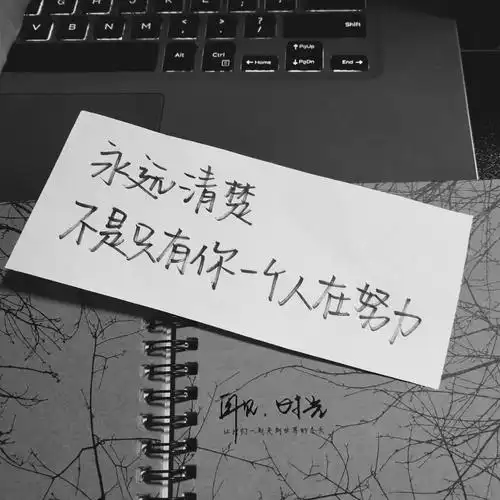 B N M < , > . ? /
Alt Ctrl Home PgUp PgDn End
永远清楚
不是只有你一个人在努力
时光